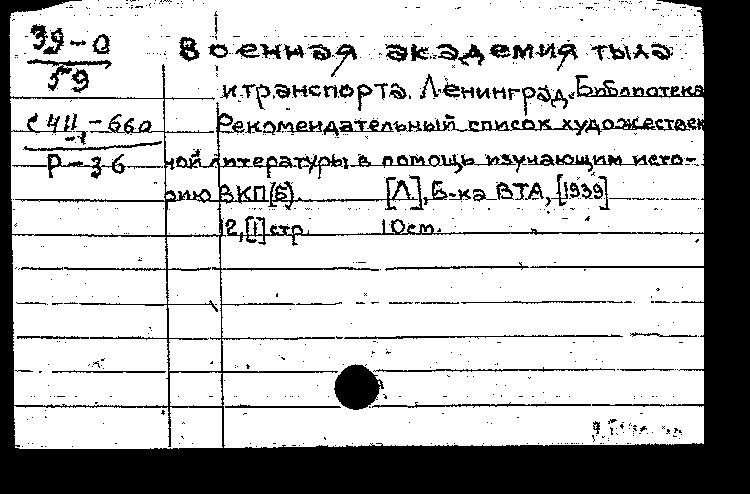 39-0
59
Военная академия тыла
и транспорта. Ленинград. Библиотека
411-660
Рекомендательный список художествен
Р-36
ной литературы в помощь изучающим исто-
рию ВКП(б).   [Л.], Б-ка ВТА, [1939]
12,[1] стр.   10 см.